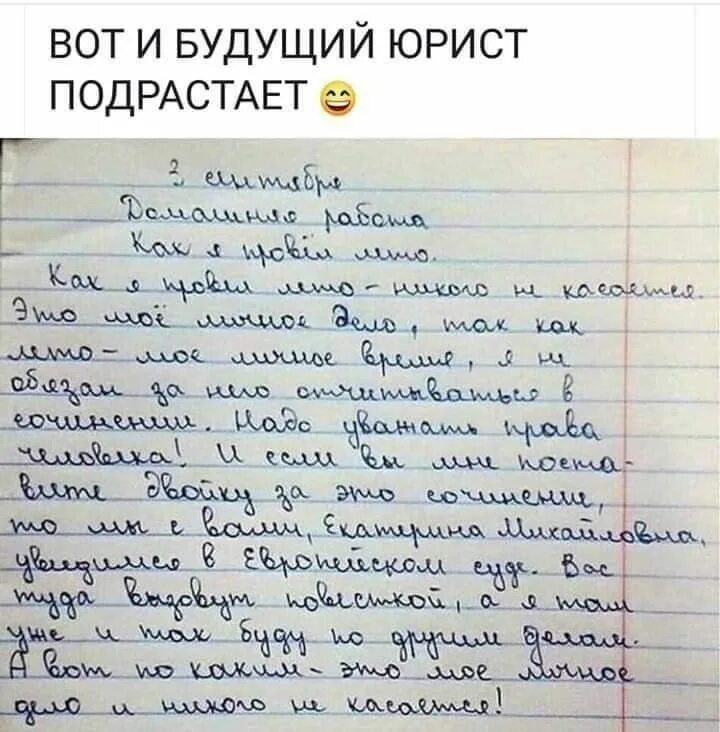 ВОТ И БУДУЩИЙ ЮРИСТ
ПОДРАСТАЕТ 😄
2 сентября
Домашняя работа
Как я провёл лето.
Как я провел лето - никого не касается.
Это моё личное дело, так как
лето - мое личное время, я не
обязан за него отчитываться в
сочинении. Надо уважать права
человека! И если вы мне поста-
вите двойку за это сочинение,
то мы с вами, Екатерина Михайловна,
увидимся в Европейском суде. Вас
туда вызовут повесткой, а я там
уже и так буду по другим делам.
А вот по каким - это мое личное
дело и никого не касается!